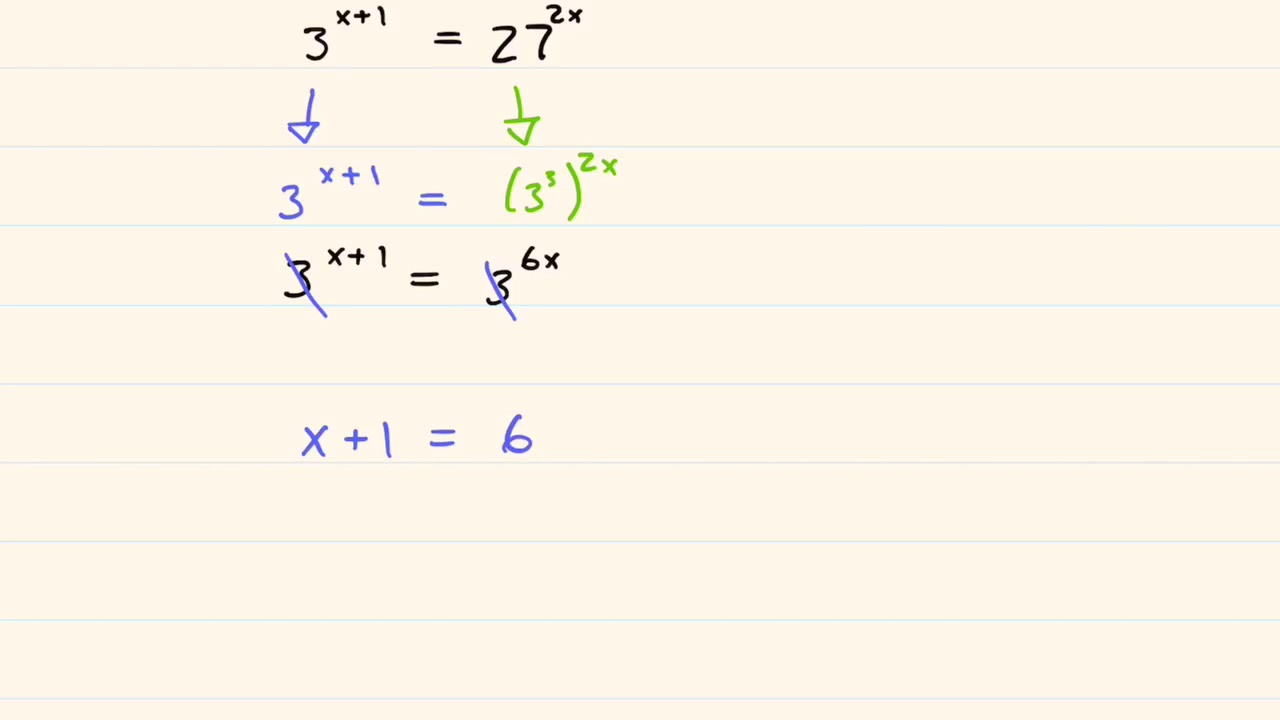 3^{x+1} = 27^{2x}
3^{x+1} = (3^3)^{2x}
3^{x+1} = 3^{6x}
x+1 = 6